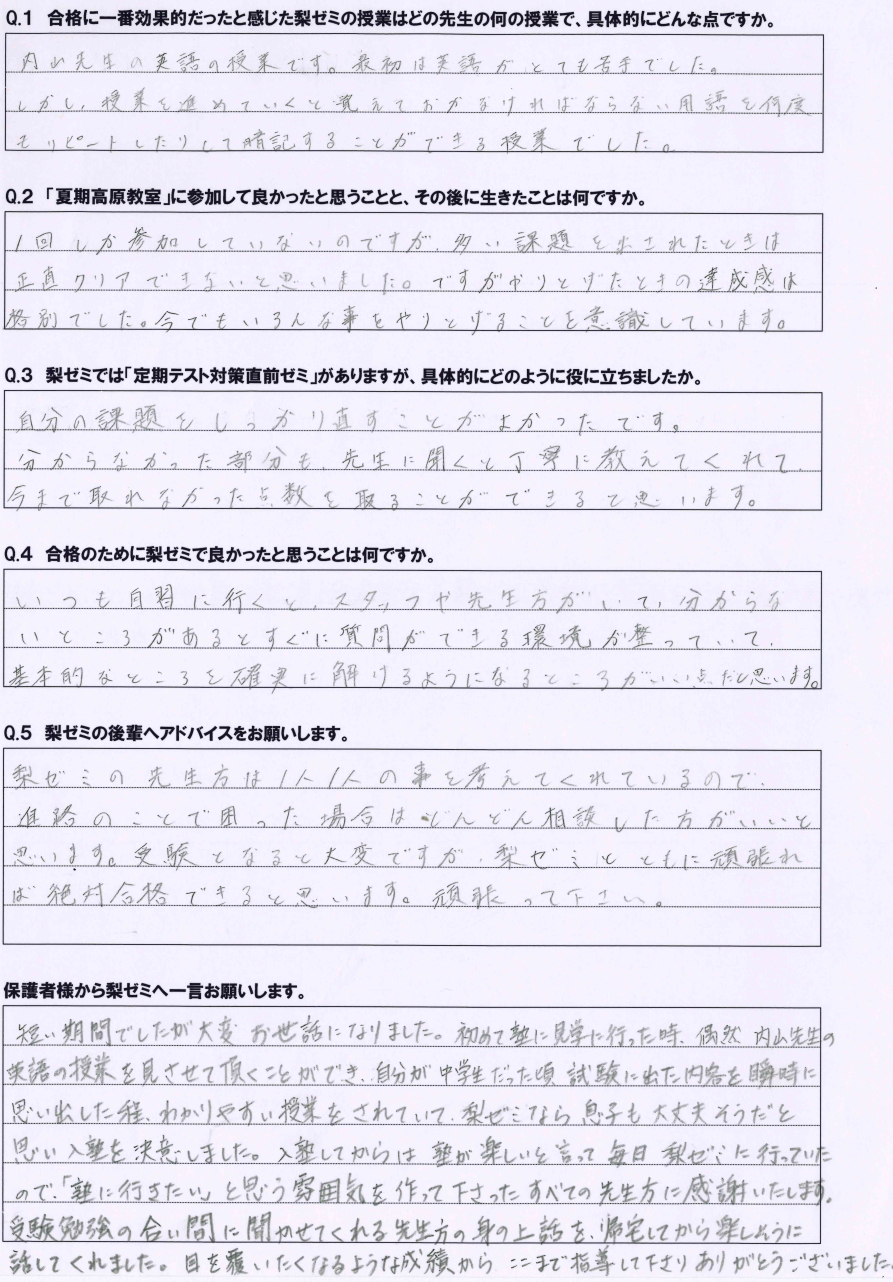 Q.1 合格に一番効果的だったと感じた梨ゼミの授業はどの先生の何の授業で、具体的にどんな点ですか。
内山先生の英語の授業です。最初は英語がとても苦手でした。
しかし、授業を進めていくと覚えておかなければならない用語を何度
もリピートしたりして暗記することができる授業でした。
Q.2 「夏期高原教室」に参加して良かったと思うことと、その後に生きたことは何ですか。
1回しか参加していないのですが、多い課題を出されたときは
正直クリアできないと思いました。ですがやりとげたときの達成感は
格別でした。今でもいろんな事をやりとげることを意識しています。
Q.3 梨ゼミでは「定期テスト対策直前ゼミ」がありますが、具体的にどのように役に立ちましたか。
自分の課題をしっかり直すことがよかったです。
分からなかった部分も、先生に聞くと丁寧に教えてくれて、
今まで取れなかった点数を取ることができると思います。
Q.4 合格のために梨ゼミで良かったと思うことは何ですか。
いつも自習に行くと、スタッフや先生方がいて、分からな
いところがあるとすぐに質問ができる環境が整っていて、
基本的なところを確実に解けるようになるところがいい点だと思います。
Q.5 梨ゼミの後輩へアドバイスをお願いします。
梨ゼミの先生方は1人1人の事を考えてくれているので、
進路のことで困った場合はどんどん相談した方がいいと
思います。受験となると大変ですが、梨ゼミとともに頑張れ
ば絶対合格できると思います。頑張って下さい。
保護者様から梨ゼミへ一言お願いします。
短い期間でしたが大変お世話になりました。初めて塾に見学に行った時、偶然内山先生の
英語の授業を見させて頂くことができ、自分が中学生だった頃試験に出た内容を瞬時に
思い出した程、わかりやすい授業をされていて、梨ゼミなら息子も大丈夫そうだと
思い入塾を決意しました。入塾してからは塾が楽しいと言って毎日梨ゼミに行っていた
ので、「塾に行きたい」と思う雰囲気を作って下さったすべての先生方に感謝いたします。
受験勉強の合い間に聞かせてくれる先生方の身の上話を、帰宅してから楽しそうに
話してくれました。目を覆いたくなるような成績からここまで指導して下さりありがとうございました。